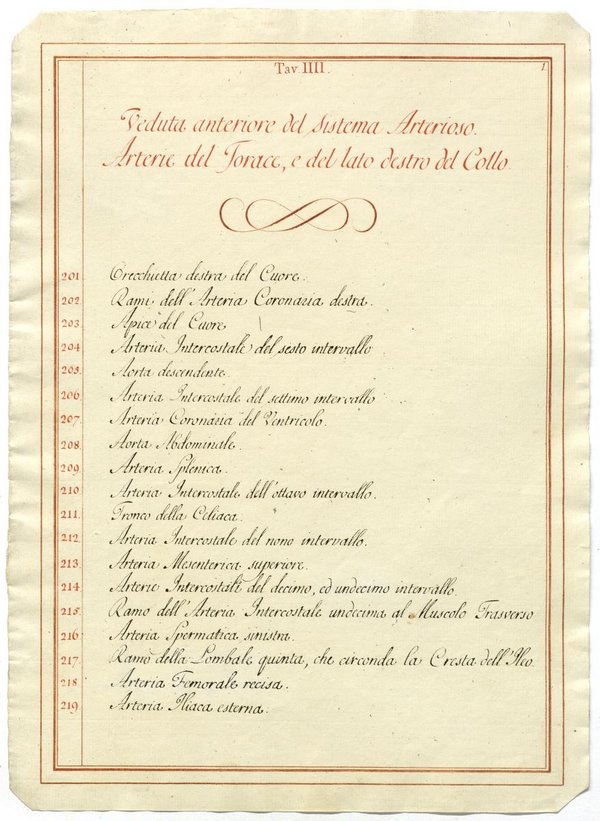 Tav. IIII.
1.
Veduta anteriore del Sistema Arterioso.
Arterie del Torace, e del lato destro del Collo.
201 Orecchietta destra del Cuore.
202. Rami dell'Arteria Coronaria destra.
203. Apice del Cuore
204 Arteria Intercostale del sesto intervallo
205. Aorta descendente.
206. Arteria Intercostale del settimo intervallo
207. Arteria Coronaria del Ventricolo.
208. Aorta Abdominale.
209. Arteria Splenica.
210. Arteria Intercostale dell'ottavo intervallo.
211. Tronco della Celiaca.
212. Arteria Intercostale del nono intervallo.
213. Arteria Mesenterica superiore.
214 Arterie Intercostali del decimo, ed undecimo intervallo.
215. Ramo dell'Arteria Intercostale undecima al Muscolo Trasverso
216 Arteria Spermatica sinistra.
217. Ramo della Lombale quinta, che circonda la Cresta dell'Ileo.
218 Arteria Femorale recisa.
219. Arteria Iliaca esterna.